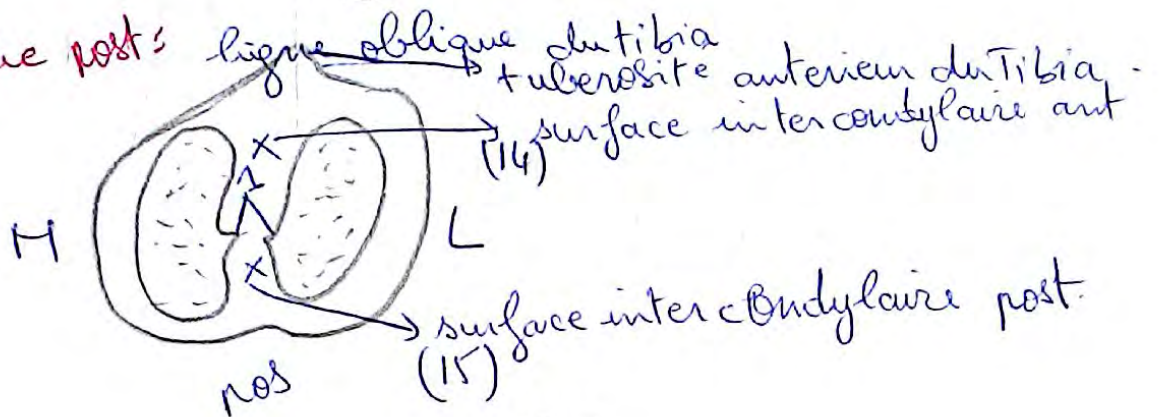 ue post: ligne oblique du tibia
tuberosite anterieur du Tibia.
surface intercondylaire ant
(14)
M L
surface intercondylaire post.
(15)
pos